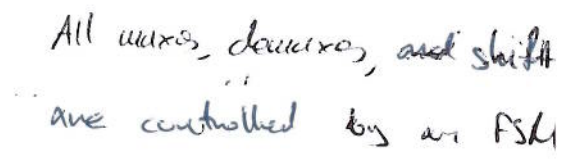 All muxes, demuxes, and shift
are controlled by an FSM